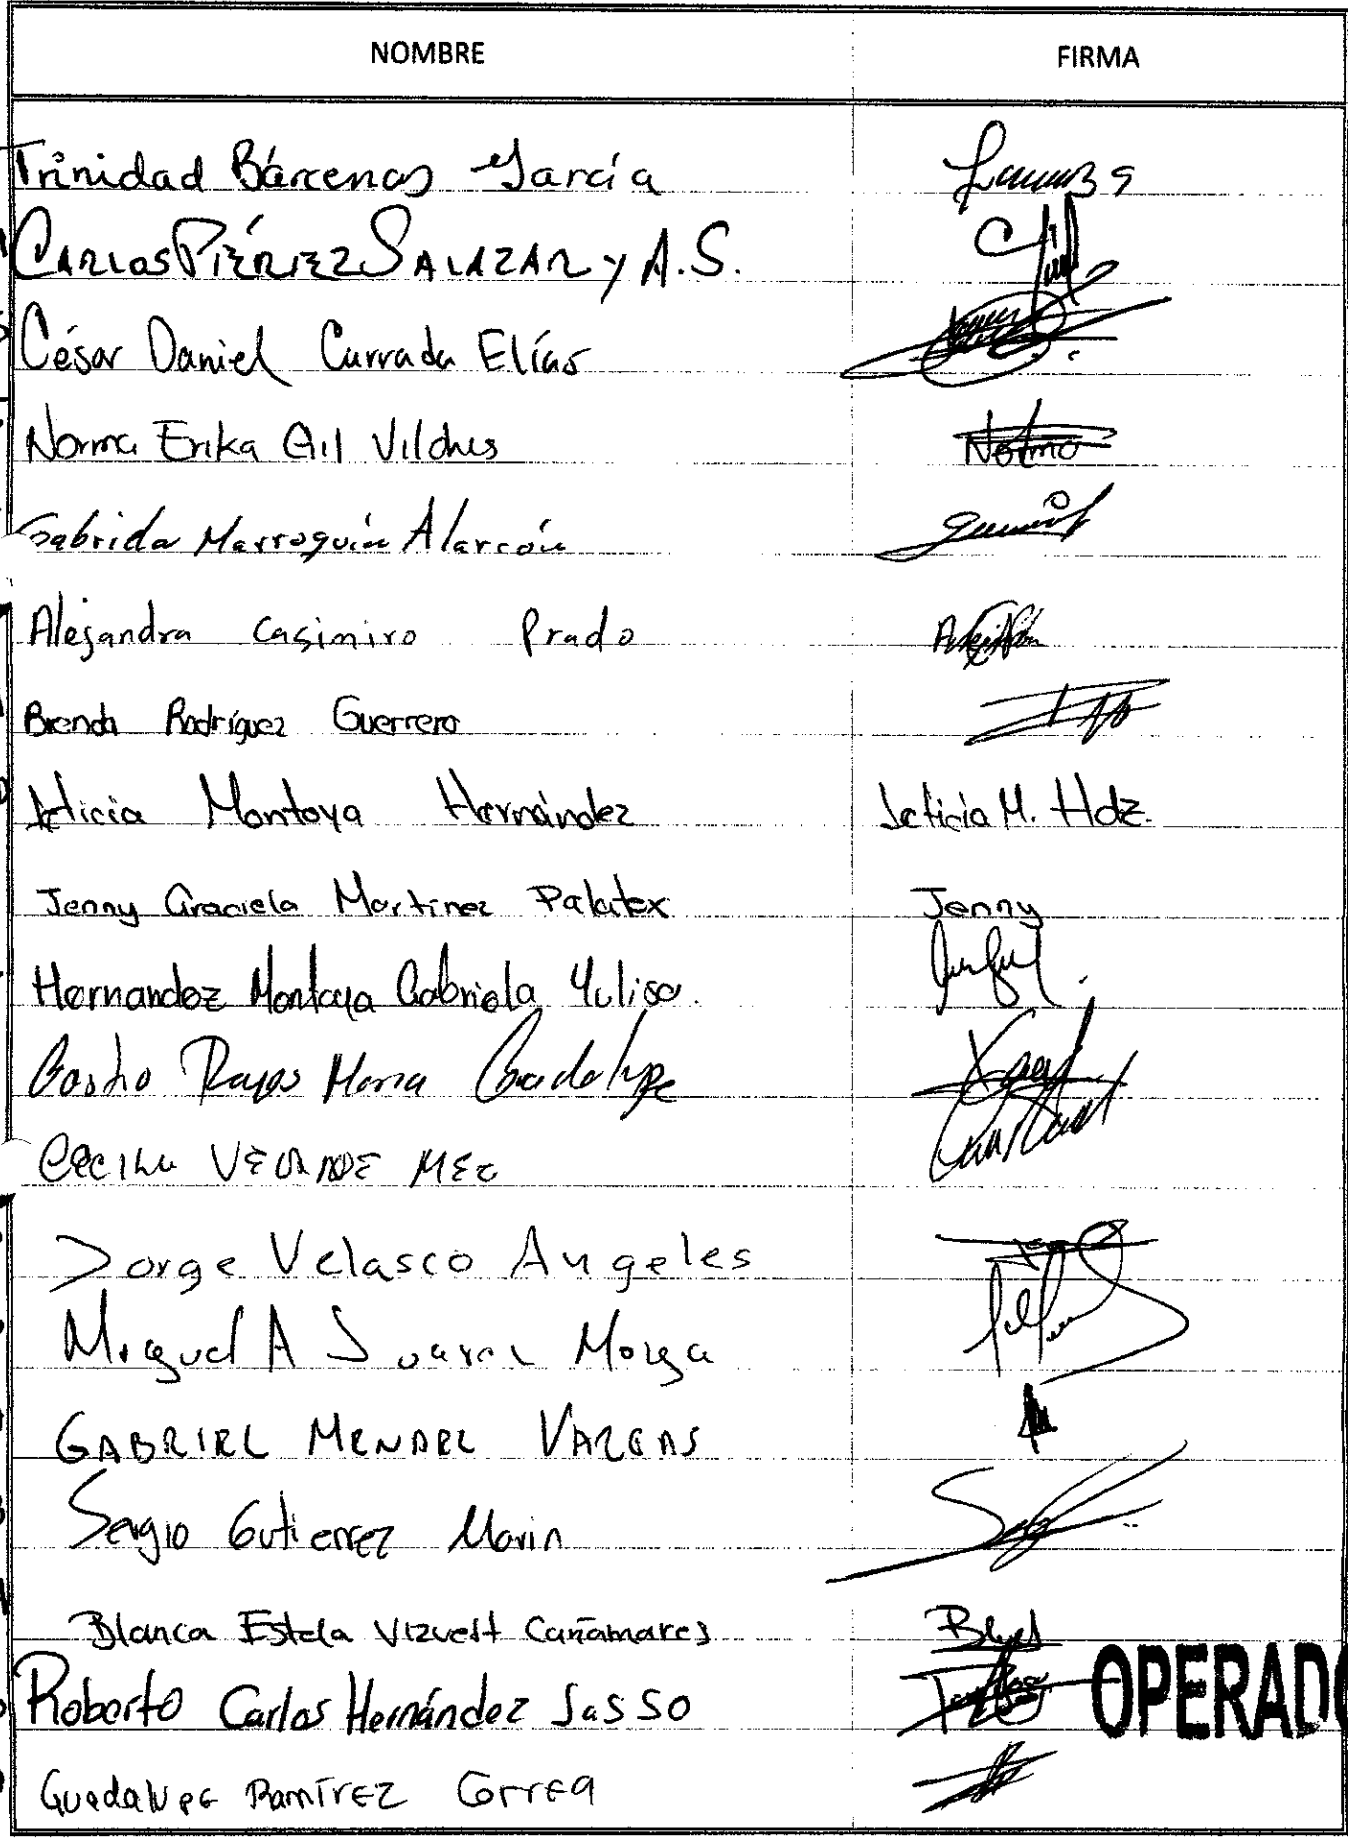 NOMBRE FIRMA
Trinidad Bárcenas García
CARLOS PIÉREZ SALAZAR Y A.S.
César Daniel Currada Elías
Norma Erika Gil Vilchis Norma
Gabriela Marroquín Alarcón
Alejandra Casimiro Prado
Brenda Rodríguez Guerrero
Leticia Montoya Hernández Leticia M. Hdz.
Jenny Graciela Martinez Palatox Jenny
Hernandez Montoya Gabriela Yulisa.
Rayas Maria Guadalupe
CECILIA
Jorge Velasco Angeles
Miguel A Suarez Moyga
GABRIEL MENDEZ VARGAS
Sergio Gutierrez Marin
Blanca Estela Vizuett Cañamares
Roberto Carlos Hernández Sasso OPERADO
Guadalupe Ramírez Correa